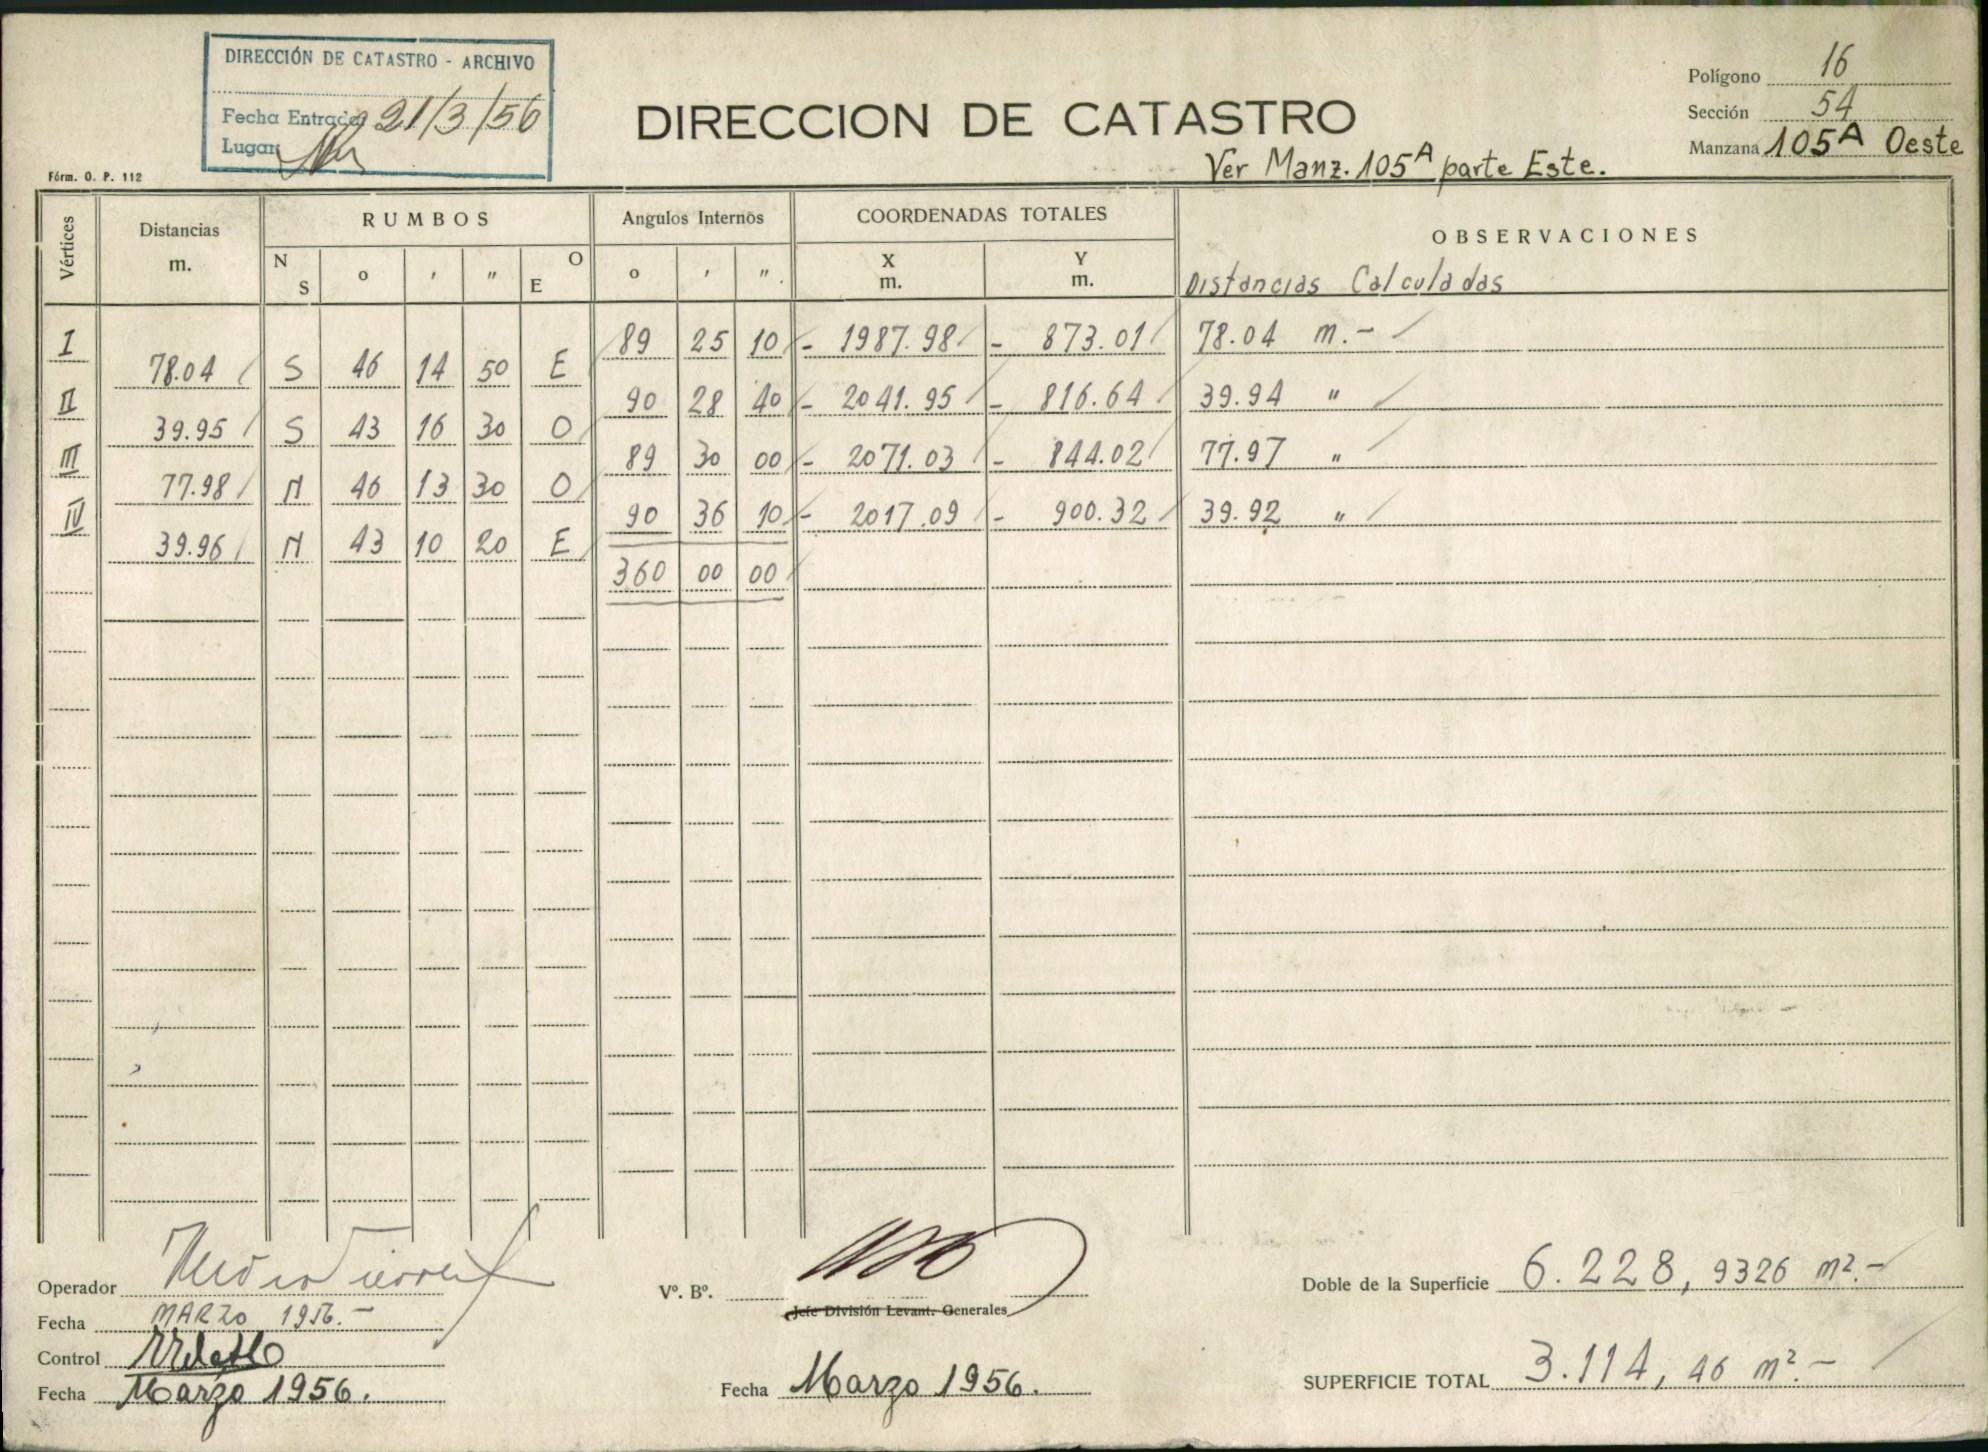 DIRECCIÓN DE CATASTRO - ARCHIVO
Fecha Entrada 21/3/56
Lugar
Fórm. O. P. 112
DIRECCION DE CATASTRO
Ver Manz. 105A parte Este.
Polígono 16
Sección 54
Manzana 105A Oeste
Vértices Distancias m. RUMBOS Angulos Internos COORDENADAS TOTALES OBSERVACIONES
N S o ' " O E o ' " X m. Y m. Distancias Calculadas
I 89 25 10 - 1987.98 - 873.01 78.04 m.-
78.04 S 46 14 50 E
II 90 28 40 - 2041.95 - 816.64 39.94 "
39.95 S 43 16 30 O
III 89 30 00 - 2071.03 - 844.02 77.97 "
77.98 N 46 13 30 O
IV 90 36 10 - 2017.09 - 900.32 39.92 "
39.96 N 43 10 20 E
360 00 00
Operador
Fecha MARZO 1956.-
Control
Fecha Marzo 1956.
Vº. Bº.
Jefe División Levant. Generales
Fecha Marzo 1956.
Doble de la Superficie 6.228,9326 m².-
SUPERFICIE TOTAL 3.114,46 m².-